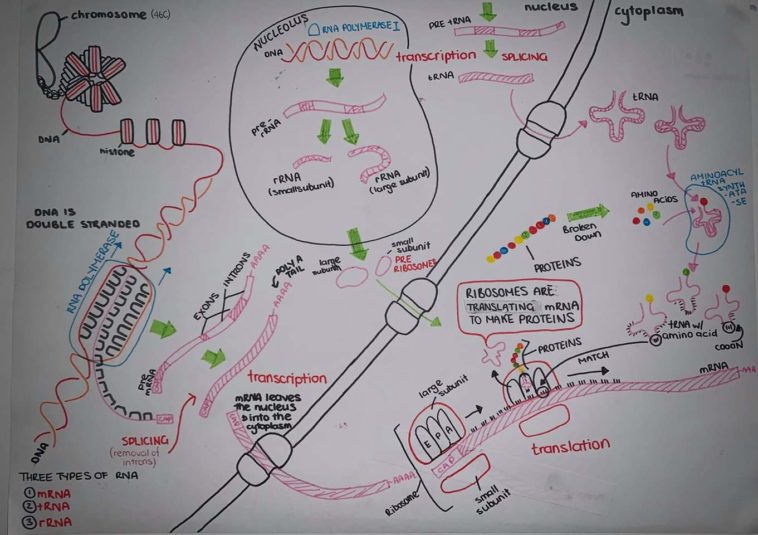 chromosome (46C)
DNA
histone
DNA IS
DOUBLE STRANDED
RNA POLYMERASE
DNA
THREE TYPES OF RNA
① mRNA
② tRNA
③ rRNA
pre
mRNA
CAP
SPLICING
(removal of
introns)
EXONS
INTRONS
AAAA
CAP
POLY A
TAIL
AAAA
CAP
transcription
mRNA leaves
the nucleus
into the
cytoplasm
AAAA
NUCLEOLUS
RNA POLYMERASE I
DNA
transcription
pre-
rRNA
rRNA
(small subunit)
rRNA
(large subunit)
large
subunit
small
subunit
PRE
RIBOSOMES
nucleus
PRE tRNA
SPLICING
tRNA
cytoplasm
tRNA
AMINOACYL
tRNA
SYNTH
-ATA
-SE
AMINO
ACIDS
Broken
Down
PROTEINS
RIBOSOMES ARE
TRANSLATING mRNA
TO MAKE PROTEINS
tRNA w/
amino acid
M
M
COOON
PROTEINS
MATCH
mRNA
AAA
large
subunit
E P A
CAP
Ribosome
small
subunit
translation